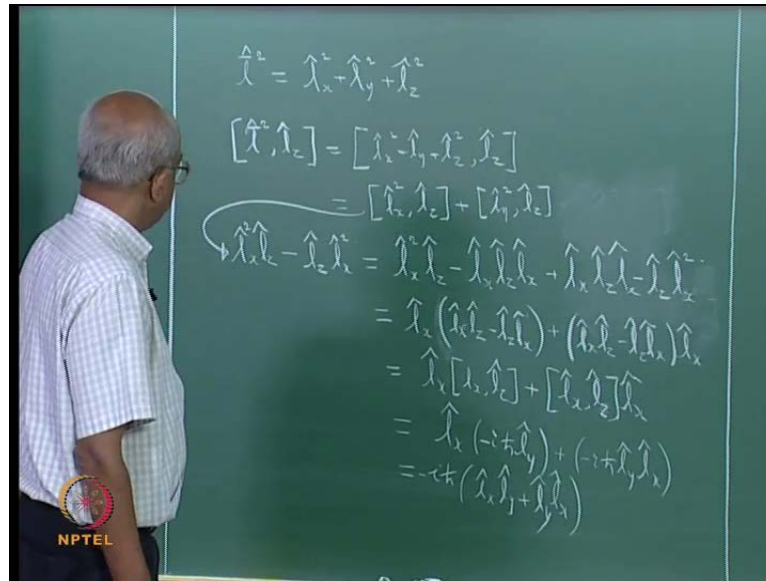 l̂² = l̂ₓ² + l̂ᵧ² + l̂_z²
[l̂², l̂_z] = [l̂ₓ² - l̂ᵧ + l̂_z², l̂_z]
= [l̂ₓ², l̂_z] + [l̂ᵧ², l̂_z]
l̂ₓ² l̂_z - l̂_z l̂ₓ² = l̂ₓ² l̂_z - l̂ₓ l̂_z l̂ₓ + l̂ₓ l̂_z l̂ₓ - l̂_z l̂ₓ²
= l̂ₓ (l̂ₓ l̂_z - l̂_z l̂ₓ) + (l̂ₓ l̂_z - l̂_z l̂ₓ) l̂ₓ
= l̂ₓ [lₓ, l̂_z] + [l̂ₓ, l̂_z] l̂ₓ
= l̂ₓ (-iħ l̂ᵧ) + (-iħ l̂ᵧ l̂ₓ)
= -iħ (l̂ₓ l̂ᵧ + l̂ᵧ l̂ₓ)
NPTEL